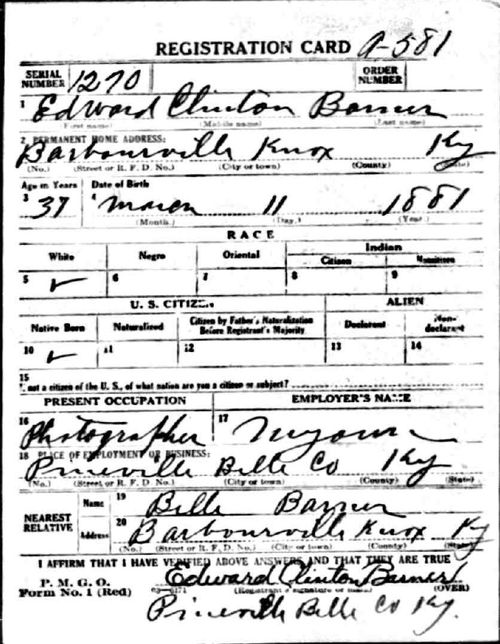 REGISTRATION CARD A-581
SERIAL NUMBER 1270 ORDER NUMBER
1 Edward Clinton Barner
(First name) (Middle name) (Last name)
2 PERMANENT HOME ADDRESS:
Barbourville Knox Ky
(No.) (Street or R. F. D. No.) (City or town) (County) (State)
Age in Years Date of Birth
3 37 4 March 11 1881
(Month.) (Day.) (Year.)
RACE
White Negro Oriental Indian
Citizen Noncitizen
5 ✓ 6 7 8 9
U. S. CITIZEN ALIEN
Native Born Naturalized Citizen by Father's Naturalization Before Registrant's Majority Declarant Non-declarant
10 ✓ 11 12 13 14
15
If not a citizen of the U. S., of what nation are you a citizen or subject?
PRESENT OCCUPATION EMPLOYER'S NAME
16 Photographer 17
18 PLACE OF EMPLOYMENT OR BUSINESS:
Pineville Belle Co Ky
(No.) (Street or R. F. D. No.) (City or town) (County) (State)
NEAREST RELATIVE Name 19 Bille Barner
Address 20 Barbourville Knox Ky
(No.) (Street or R. F. D. No.) (City or town) (County) (State)
I AFFIRM THAT I HAVE VERIFIED ABOVE ANSWERS AND THAT THEY ARE TRUE
P. M. G. O.
Form No. 1 (Red) 03-6171 Edward Clinton Barner
(Registrant's signature or mark) (OVER)
Pineville Belle Co Ky.